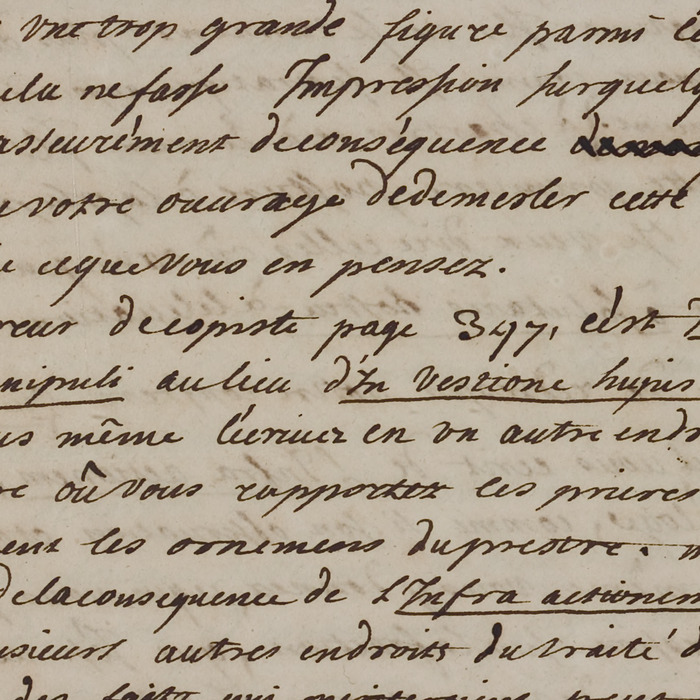 vne trop grande figure parmi
ne fasse Impression sur quelq
asseurément de conséquence
votre ouvrage de demesler cette
ce que vous en pensez.
reur de copiste page 347, c'est
nipuli au lieu d'In Vestione hujus
us même l'écriuez en vn autre endr
où vous rapportez les prieres
ent les ornemens du prestre.
de la consequence de L'Infra actionem
usieurs autres endroits du traité d
des faits qui